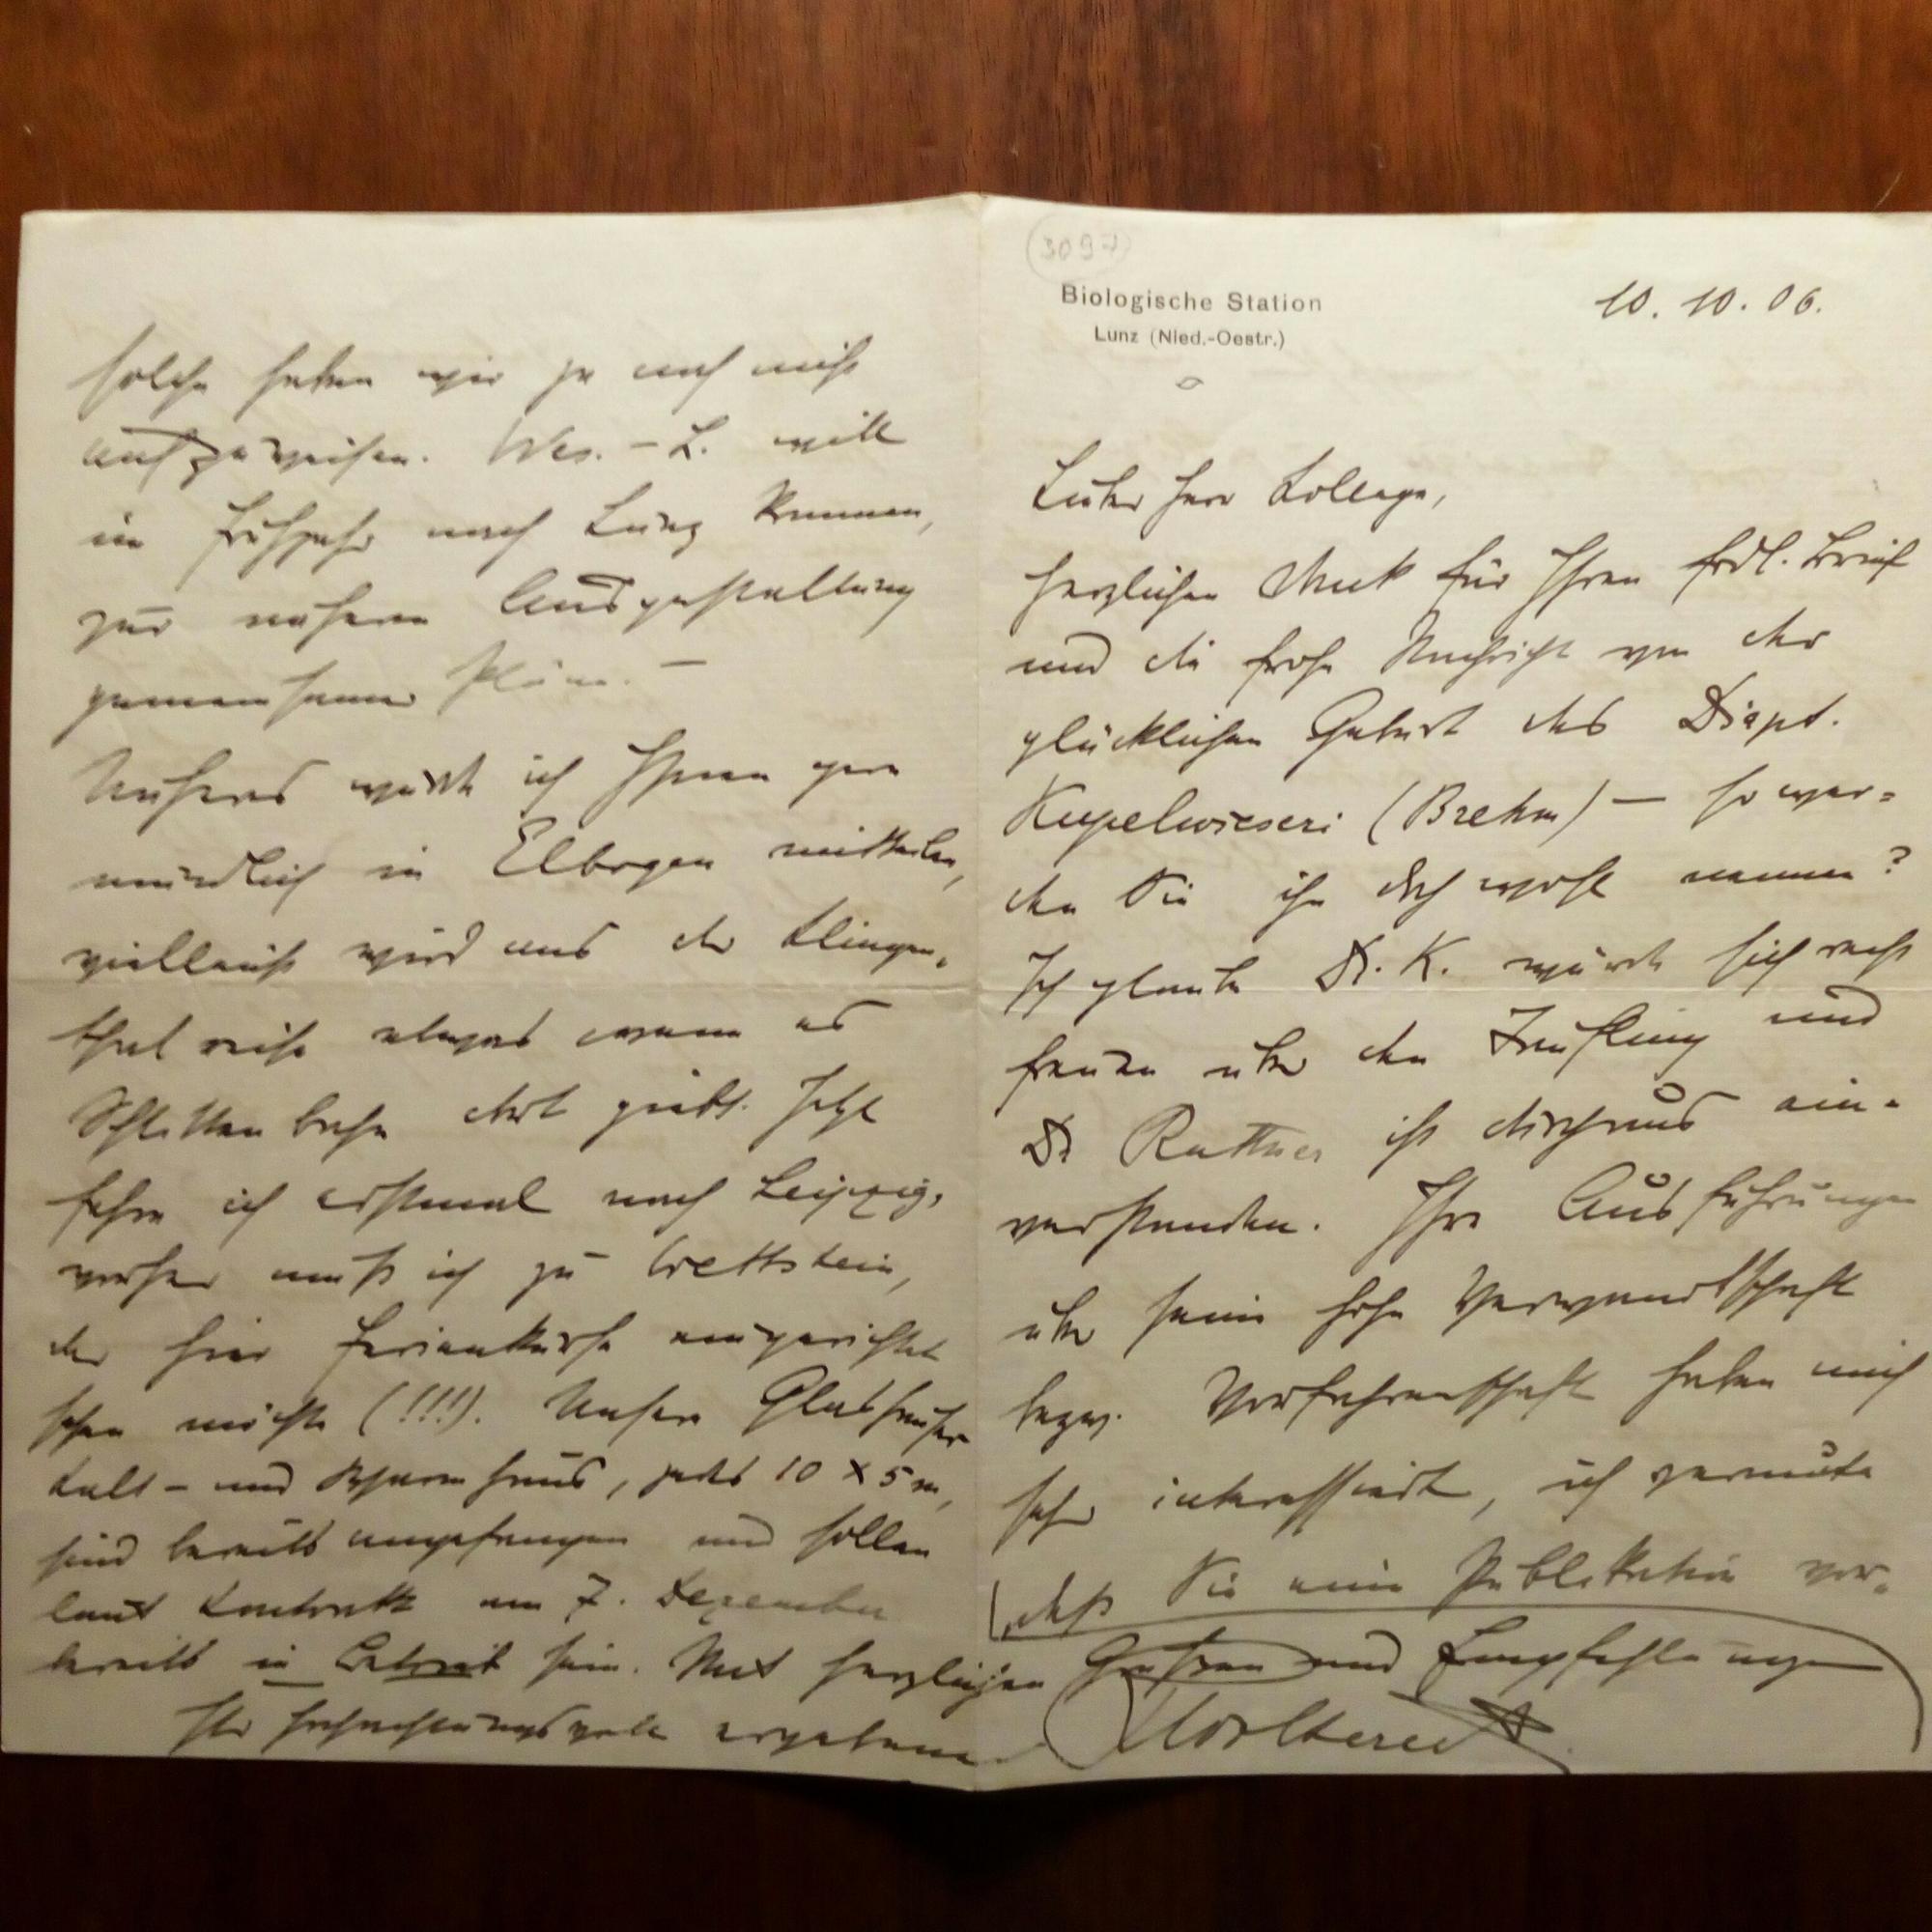 3097
Biologische Station
Lunz (Nied.-Oestr.)
10. 10. 06.
Lieber Herr Kollege,
herzlichen Dank für Ihren frdl. Brief
und die frohe Nachricht von der
glücklichen Geburt des Diapt.
Kupelwieseri (Brehm) — so wer=
den Sie ihn doch wohl nennen?
Ich glaube Dr. K. würde sich recht
freuen über den Täufling und
Dr Ruttner ist durchaus ein-
verstanden. Ihre Ausführungen
über seine hohe Verwandtschaft
bezw. Vorfahrenschaft haben mich
sehr interessiert, ich vermute
daß Sie eine Publikation vor-
solche haben wir ja noch nicht
aufzuweisen. Wes.-L. will
im Frühjahr nach Lunz kommen,
zur näheren Ausgestaltung
gemeinsamer Pläne. —
Näheres würde ich Ihnen gern
mündlich in Elbogen mitteilen,
vielleicht wird aus der Klingen-
thal reise etwas wenn es
Schlittenbahn dort giebt. Jetzt
fahre ich erstmal nach Leipzig,
vorher muß ich zu Wettstein,
der hier Ferienkurse eingerichtet
sehen möchte (!!!). Unsere Glashäuser
Kalt- und Warmhaus, jedes 10 x 5 m,
sind bereits angefangen und sollen
laut Kontrakt am 7. Dezember
bereits in Betrieb sein. Mit herzlichen Grüßen und Empfehlungen
Ihr hochachtungsvoll ergebener Woltereck